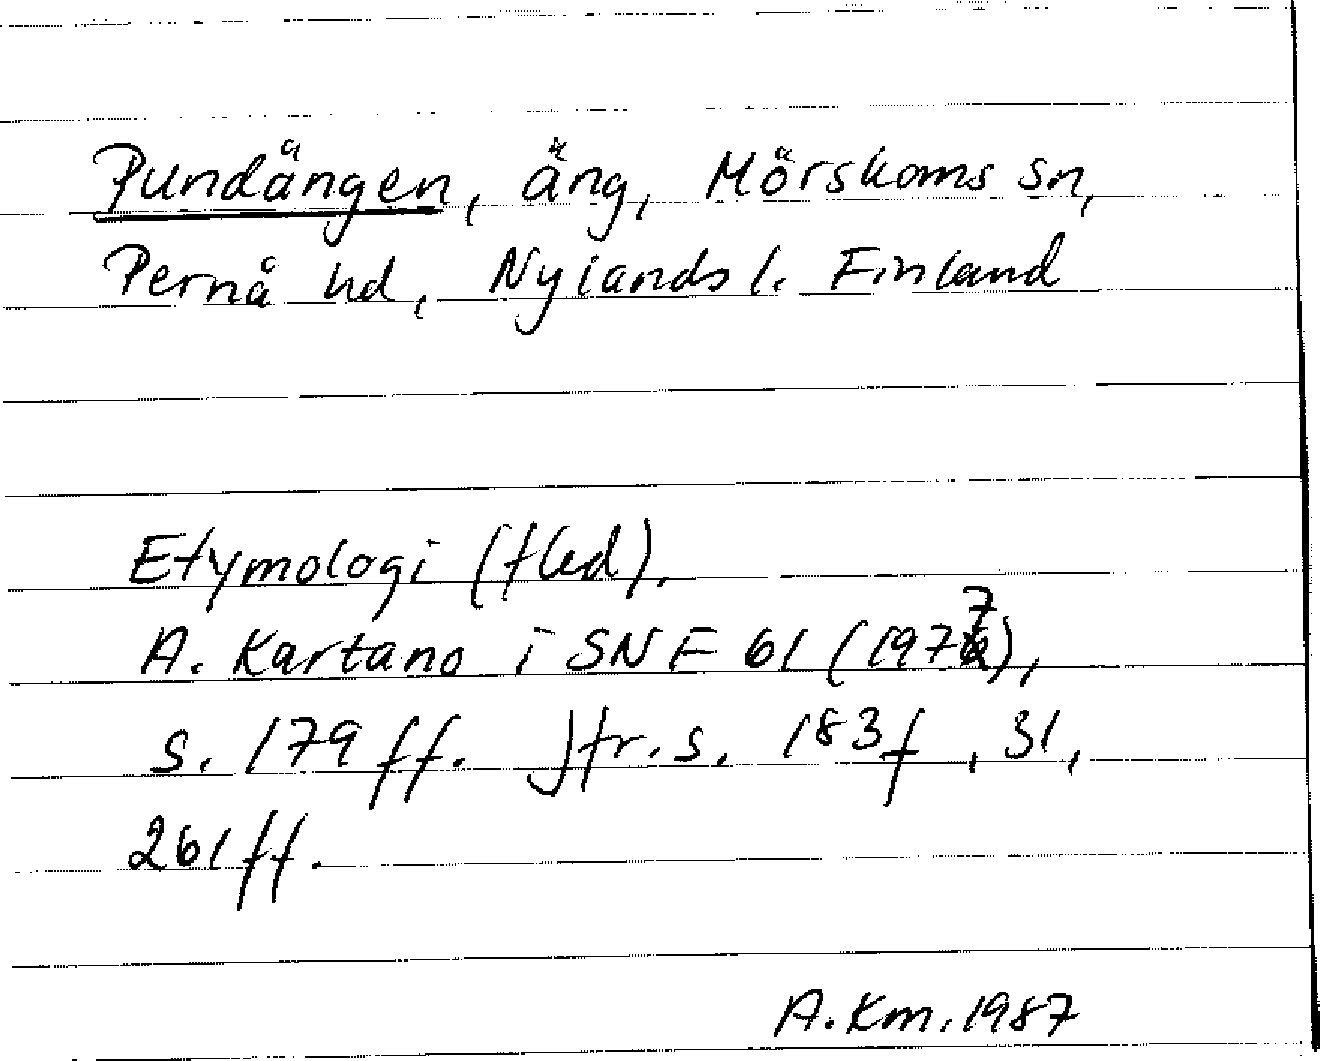 Pundängen, äng, Mörskoms sn,
Pernå hd, Nylands l. Finland
Etymologi (fled).
A. Kartano i SNF 61 (1977),
s. 179 ff. Jfr. s. 183 f, 31,
261 ff.
A. Km. 1987